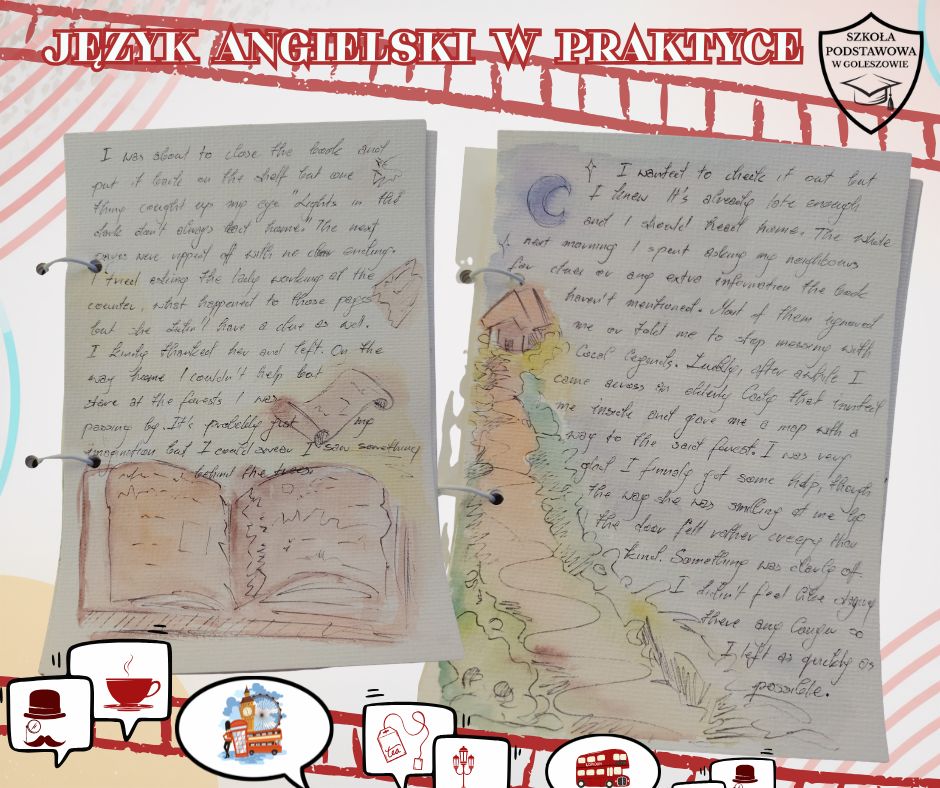 JĘZYK ANGIELSKI W PRAKTYCE
SZKOŁA
PODSTAWOWA
W GOLESZOWIE
I was about to close the book and
put it back on the shelf but one
thing cought up my eye "Lights in the
dark don't always lead home." The next
pages were ripped off with no clear ending.
I tried asking the lady working at the
counter, what happened to those pages
but she didn't have a clue as well.
I kindly thanked her and left. On the
way home I couldn't help but
stare at the forests I was
passing by. It's probably just my
imagination but I could swear I saw something
behind the trees.
I wanted to check it out but
I knew it's already late enough
and I should head home. The whole
next morning I spent asking my neighbours
for clues or any extra information the book
haven't mentioned. Most of them ignored
me or told me to stop messing with
local legends. Luckily, after awhile I
came across an elderly lady that invited
me inside and gave me a map with a
way to the said forest. I was very
glad I finally got some help, though
the way she was smiling at me by
the door felt rather creepy than
kind. Something was clearly off
I didn't feel like staying
there any longer so
I left as quickly as
possible.
tea
LONDON